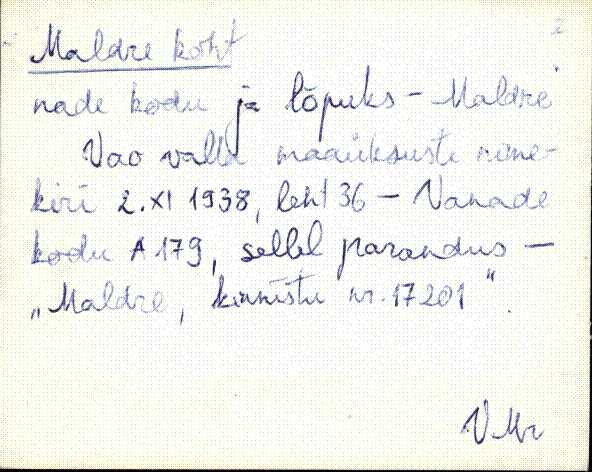 2
Maldre koht
nade kodu ja lõpuks – Maldre
Vao valla maaüksuste nime-
kiri 2. XI 1938, leht 36 – Vanade
kodu A 179, sellel parandus –
„Maldre, kinnistu nr. 17201".
VMr